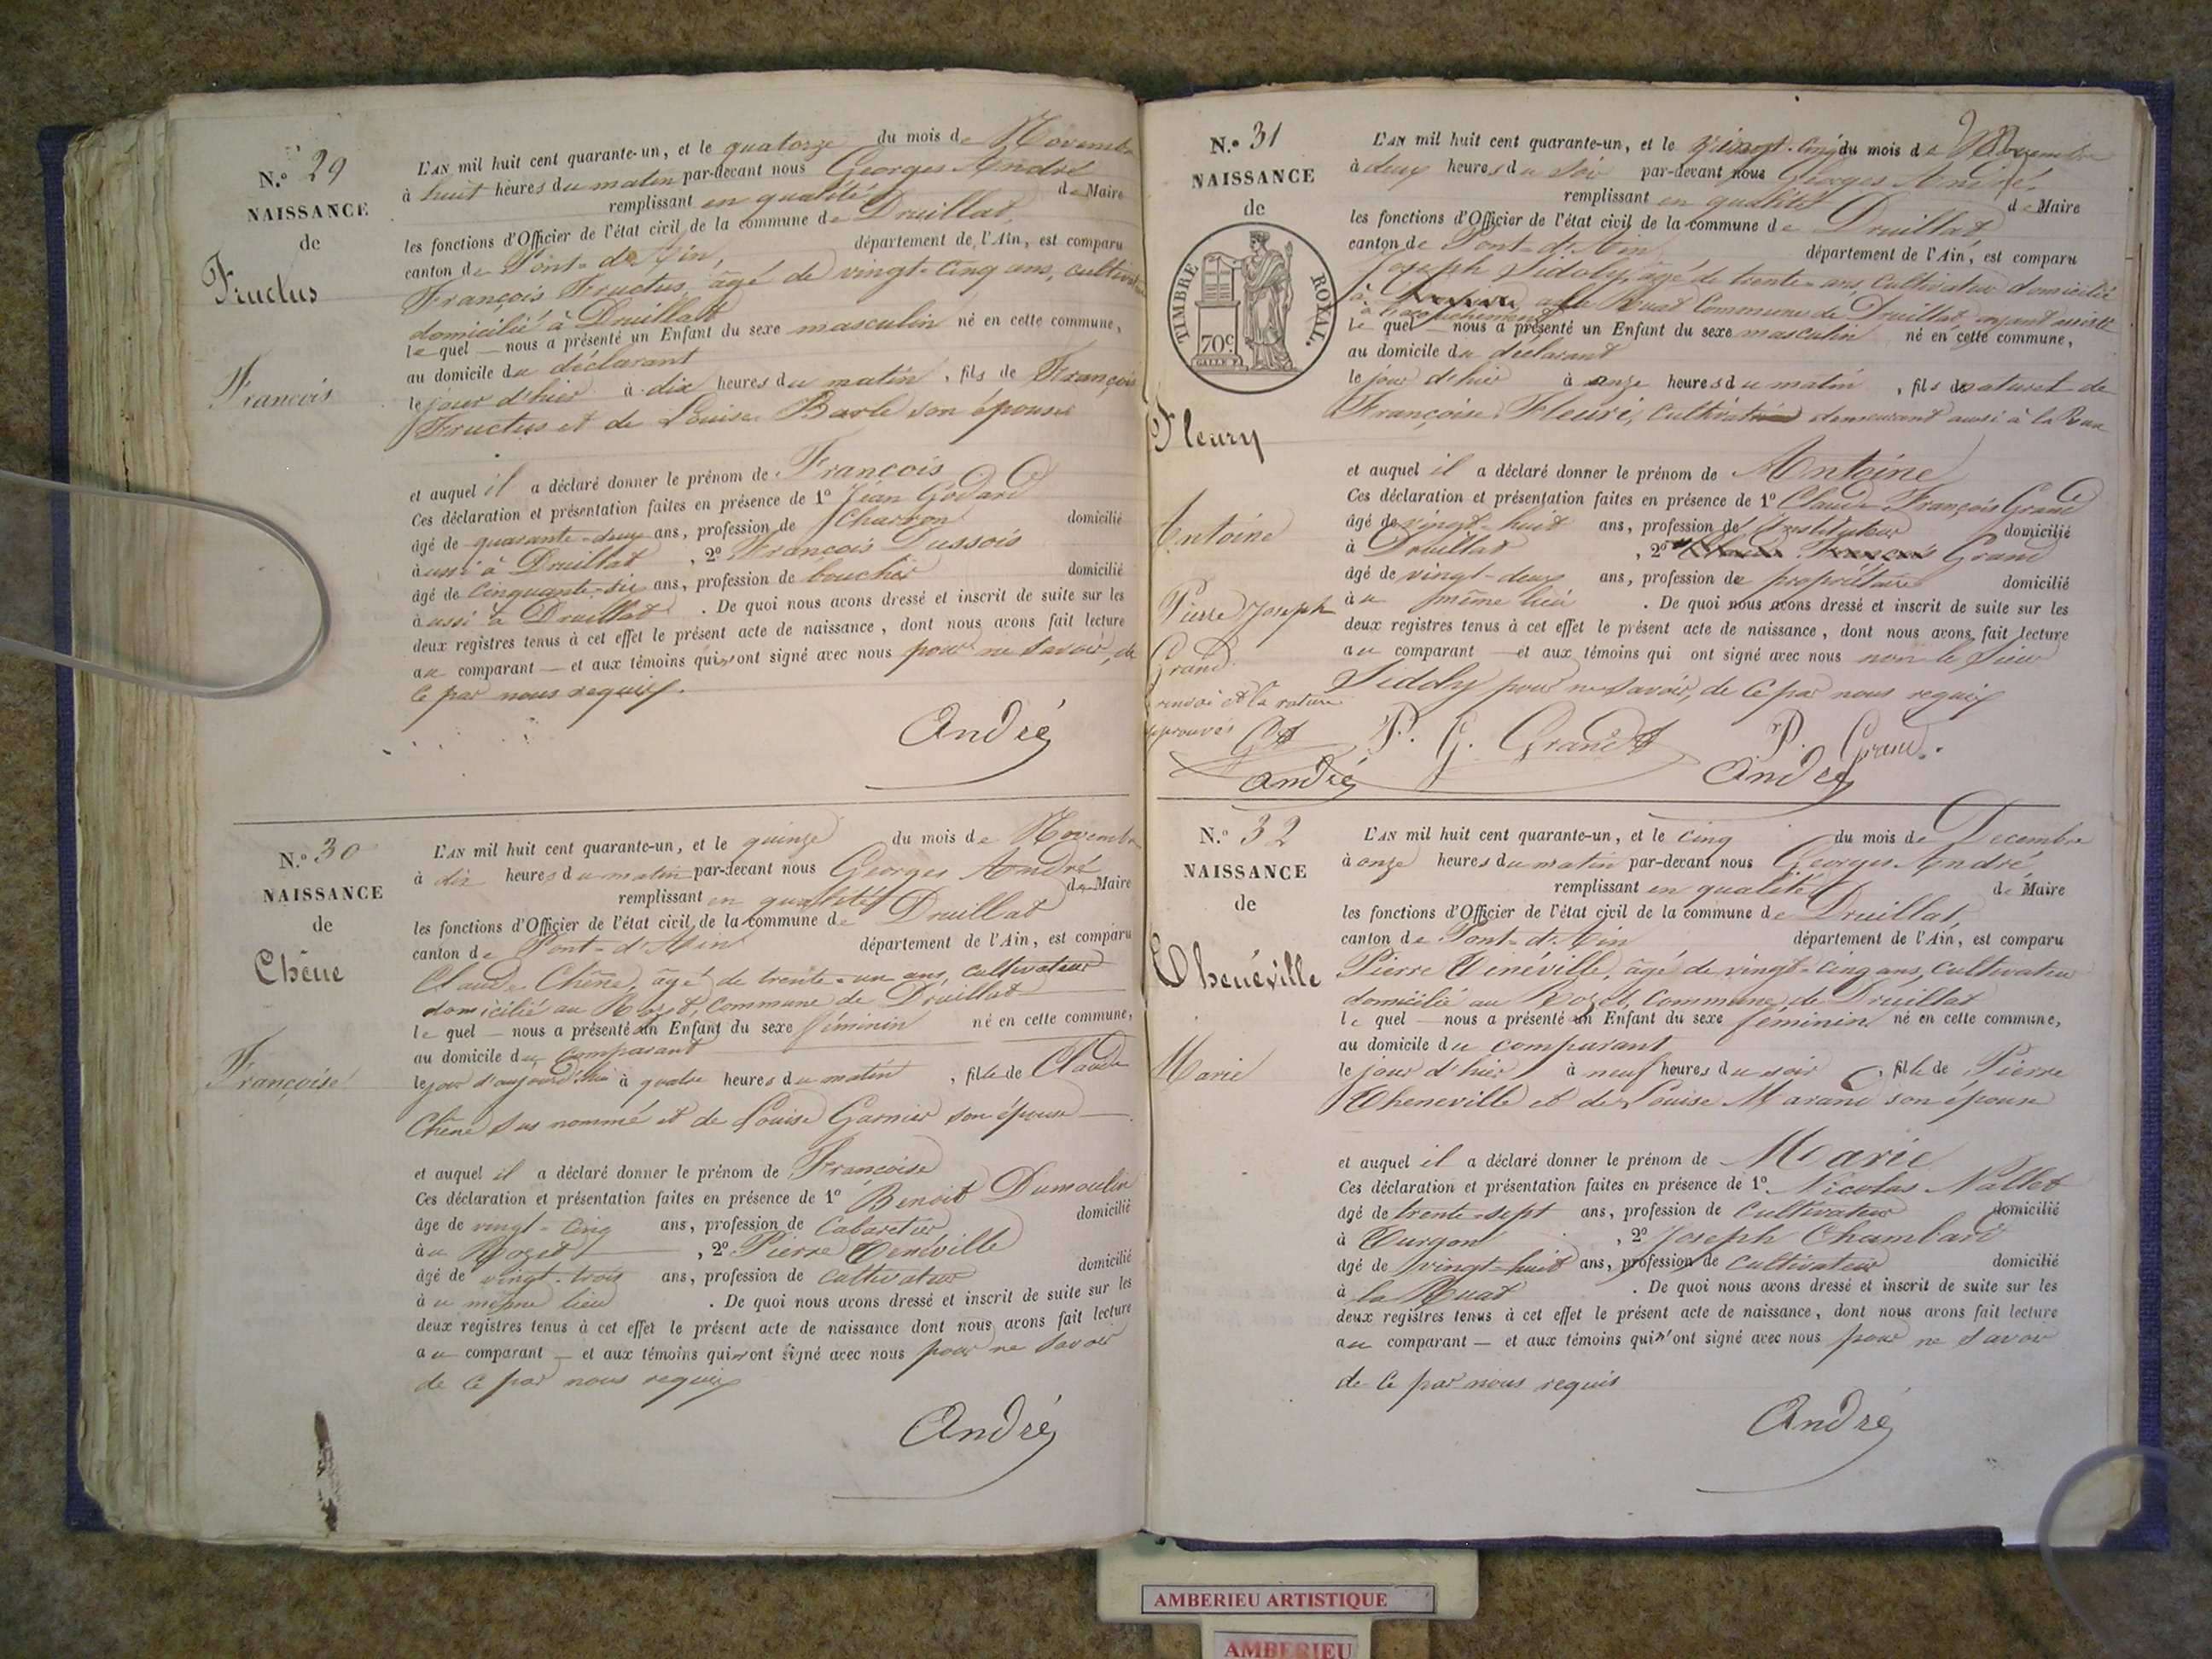 N.º 29
NAISSANCE
de
Fructus
François
L'AN mil huit cent quarante-un, et le quatorze du mois de Novembre
à huit heures du matin par-devant nous Georges André
remplissant en qualité de Maire
les fonctions d'Officier de l'état civil de la commune de Druillat,
canton de Pont-d'Ain, département de l'Ain, est comparu
François Fructus, âgé de vingt-cinq ans, cultivateur
domicilié à Druillat
lequel — nous a présenté un Enfant du sexe masculin né en cette commune,
au domicile du déclarant
le jour d'hier à dix heures du matin, fils de François
Fructus et de Louise Barle son épouse
et auquel il a déclaré donner le prénom de François
Ces déclaration et présentation faites en présence de 1º Jean Godard
âgé de quarante-deux ans, profession de Charron domicilié
aussi à Druillat, 2º François Dussois
âgé de cinquante-six ans, profession de boucher domicilié
aussi à Druillat. De quoi nous avons dressé et inscrit de suite sur les
deux registres tenus à cet effet le présent acte de naissance, dont nous avons fait lecture
au comparant — et aux témoins qui n'ont signé avec nous pour ne savoir, de
ce par nous requis.
André
N.º 30
NAISSANCE
de
Chêne
Françoise
L'AN mil huit cent quarante-un, et le quinze du mois de Novembre
à dix heures du matin par-devant nous Georges André
remplissant en qualité de Maire
les fonctions d'Officier de l'état civil de la commune de Druillat
canton de Pont-d'Ain département de l'Ain, est comparu
Claude Chêne, âgé de trente-un ans, cultivateur
domicilié au Rozet, Commune de Druillat
lequel — nous a présenté un Enfant du sexe féminin né en cette commune,
au domicile du comparant
le jour d'aujourd'hui à quatre heures du matin, fille de Claude
Chêne sus nommé et de Louise Garnier son épouse
et auquel il a déclaré donner le prénom de Françoise
Ces déclaration et présentation faites en présence de 1º Benoit Dumoulin
âge de vingt-cinq ans, profession de Cabaretier domicilié
au Rozet, 2º Pierre Cenéville
âgé de vingt-trois ans, profession de cultivateur domicilié
au même lieu. De quoi nous avons dressé et inscrit de suite sur les
deux registres tenus à cet effet le présent acte de naissance dont nous avons fait lecture
au comparant — et aux témoins qui n'ont signé avec nous pour ne savoir
de ce par nous requis
André
N.º 31
NAISSANCE
de
TIMBRE ROYAL.
70c
Fleury
Antoine
Pierre Joseph
Grand
renvoi et la rature
approuvés
André
L'AN mil huit cent quarante-un, et le vingt-cinq du mois de Novembre
à deux heures du soir par-devant nous Georges André
remplissant en qualité de Maire
les fonctions d'Officier de l'état civil de la commune de Druillat
canton de Pont-d'Ain département de l'Ain, est comparu
Joseph Sidoly, âgé de trente ans Cultivateur domicilié
à la Ruat Commune de Druillat ayant assisté
à l'accouchement
le quel — nous a présenté un Enfant du sexe masculin né en cette commune,
au domicile du déclarant
le jour d'hier à onze heures du matin, fils naturel de
Françoise Fleuri, Cultivatrice demeurant aussi à la Ruat
et auquel il a déclaré donner le prénom de Antoine
Ces déclaration et présentation faites en présence de 1º Claude François Grand
âgé de vingt-huit ans, profession de Instituteur domicilié
à Druillat, 2º Grand
âgé de vingt-deux ans, profession de propriétaire domicilié
au même lieu. De quoi nous avons dressé et inscrit de suite sur les
deux registres tenus à cet effet le présent acte de naissance, dont nous avons fait lecture
au comparant — et aux témoins qui ont signé avec nous non le sieur
Sidoly pour ne savoir, de ce par nous requis
Grand P. Grand.
André
N.º 32
NAISSANCE
de
Chenéville
Marie
L'AN mil huit cent quarante-un, et le cinq du mois de Decembre
à onze heures du matin par-devant nous Georges André
remplissant en qualité de Maire
les fonctions d'Officier de l'état civil de la commune de Druillat,
canton de Pont-d'Ain département de l'Ain, est comparu
Pierre Cenéville, âgé de vingt-cinq ans, Cultivateur
domicilié au Rozet, Commune de Druillat
le quel — nous a présenté un Enfant du sexe féminin né en cette commune,
au domicile du comparant
le jour d'hier à neuf heures du soir, fille de Pierre
Cheneville et de Louise Marand son épouse
et auquel il a déclaré donner le prénom de Marie
Ces déclaration et présentation faites en présence de 1º Nicolas Nallet
âgé de trente-sept ans, profession de Cultivateur domicilié
à Turgon, 2º Joseph Chambard
âgé de vingt-huit ans, profession de Cultivateur domicilié
à la Ruat. De quoi nous avons dressé et inscrit de suite sur les
deux registres tenus à cet effet le présent acte de naissance, dont nous avons fait lecture
au comparant — et aux témoins qui n'ont signé avec nous pour ne savoir
de ce par nous requis
André
AMBERIEU ARTISTIQUE
AMBERIEU